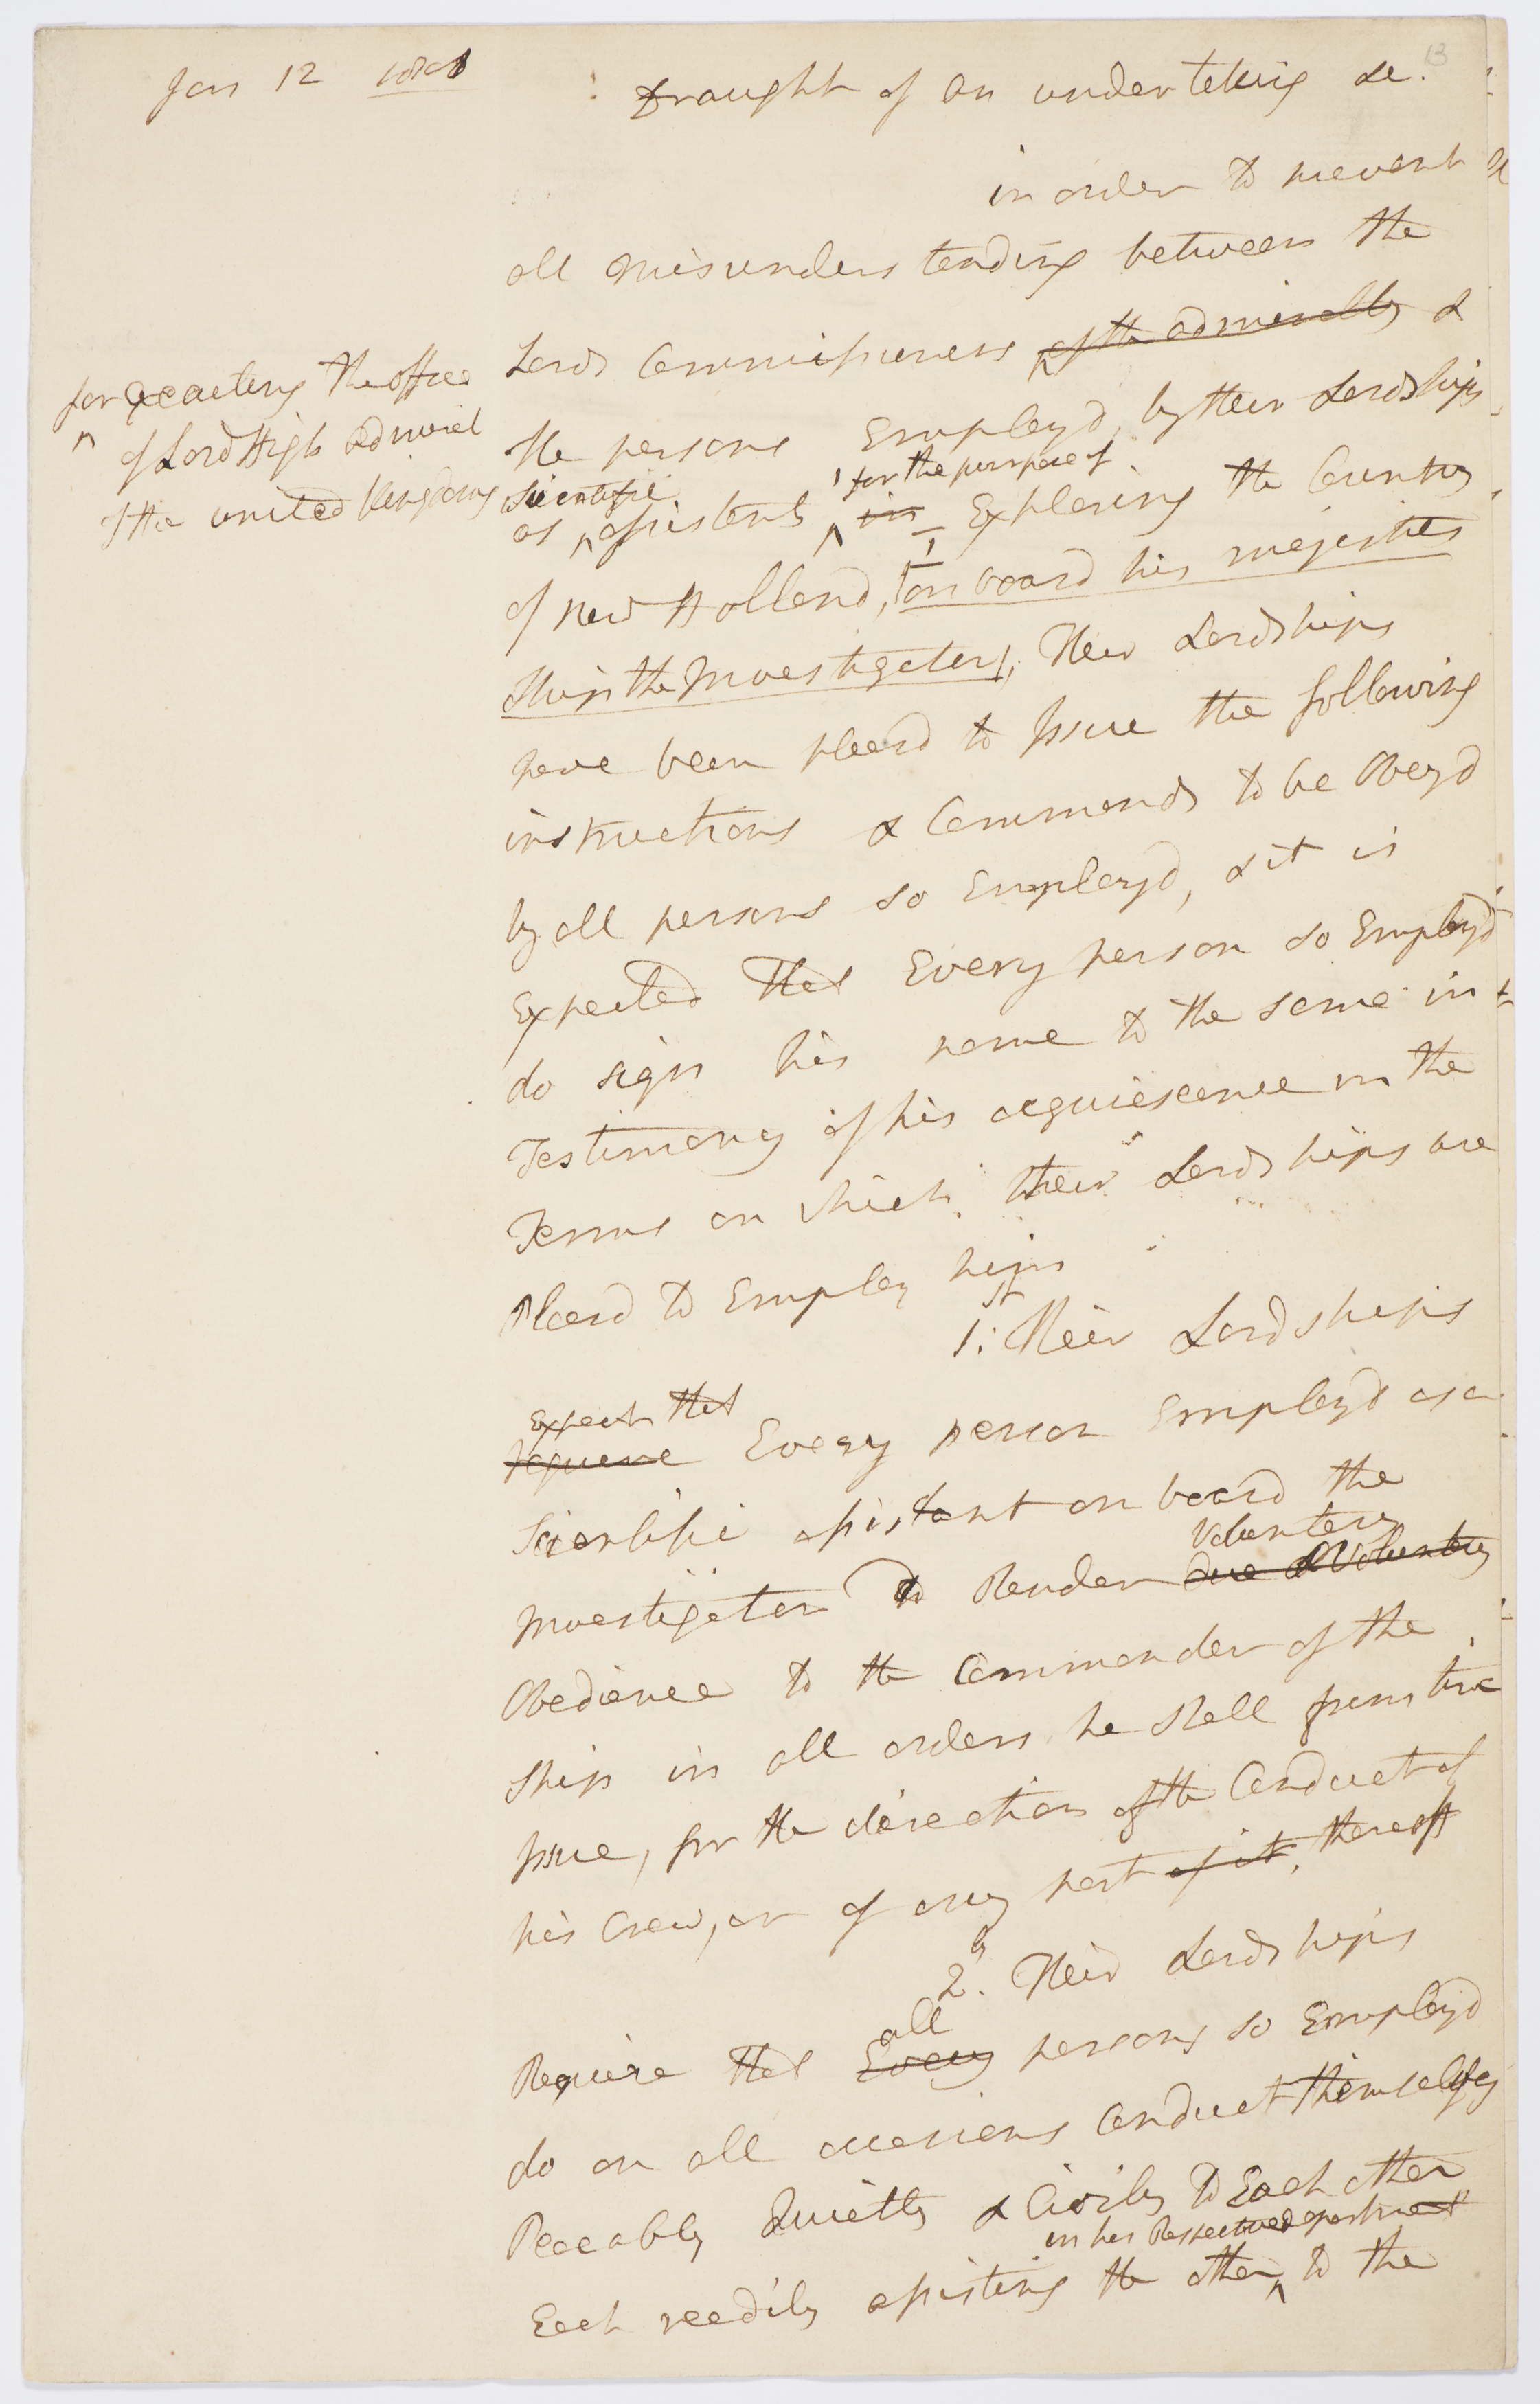 Jan 12 1801
13
Draught of an undertaking &c.
in order to prevent
all misunderstanding between the
Lords Commissioners of the admiralty &
for Executing the office
of Lord High admiral
of the united Kingdoms
the persons Employd, by their Lordships
scientific for the purpose of
as assistants in Exploring the Country
of New Holland, on board his majesties
Ship the Investigator, Their Lordships
have been pleasd to Issue the following
instructions & Commands to be Obeyd
by all persons so Employd, & it is
Expected that Every person so Employd
do sign his name to the same in
Testimony of his acquiescence in the
Terms on which their Lordships are
Pleasd to Employ him
1st: Their Lordships
Expect that
require Every person Employd as a
Scientific assistant on board the
Voluntary
Investigator to Render due & Voluntary
Obedience to the Commander of the
Ship in all orders he shall from time
Issue, for the direction of the Conduct of
his Crew, or of any part of it, thereoff
2d. Their Lordships
all
Require that Every persons so Employd
do on all occasions Conduct themselves
Peaceably Quietly & Civily to Each other
in his Respective department
Each readily assisting the other, to the